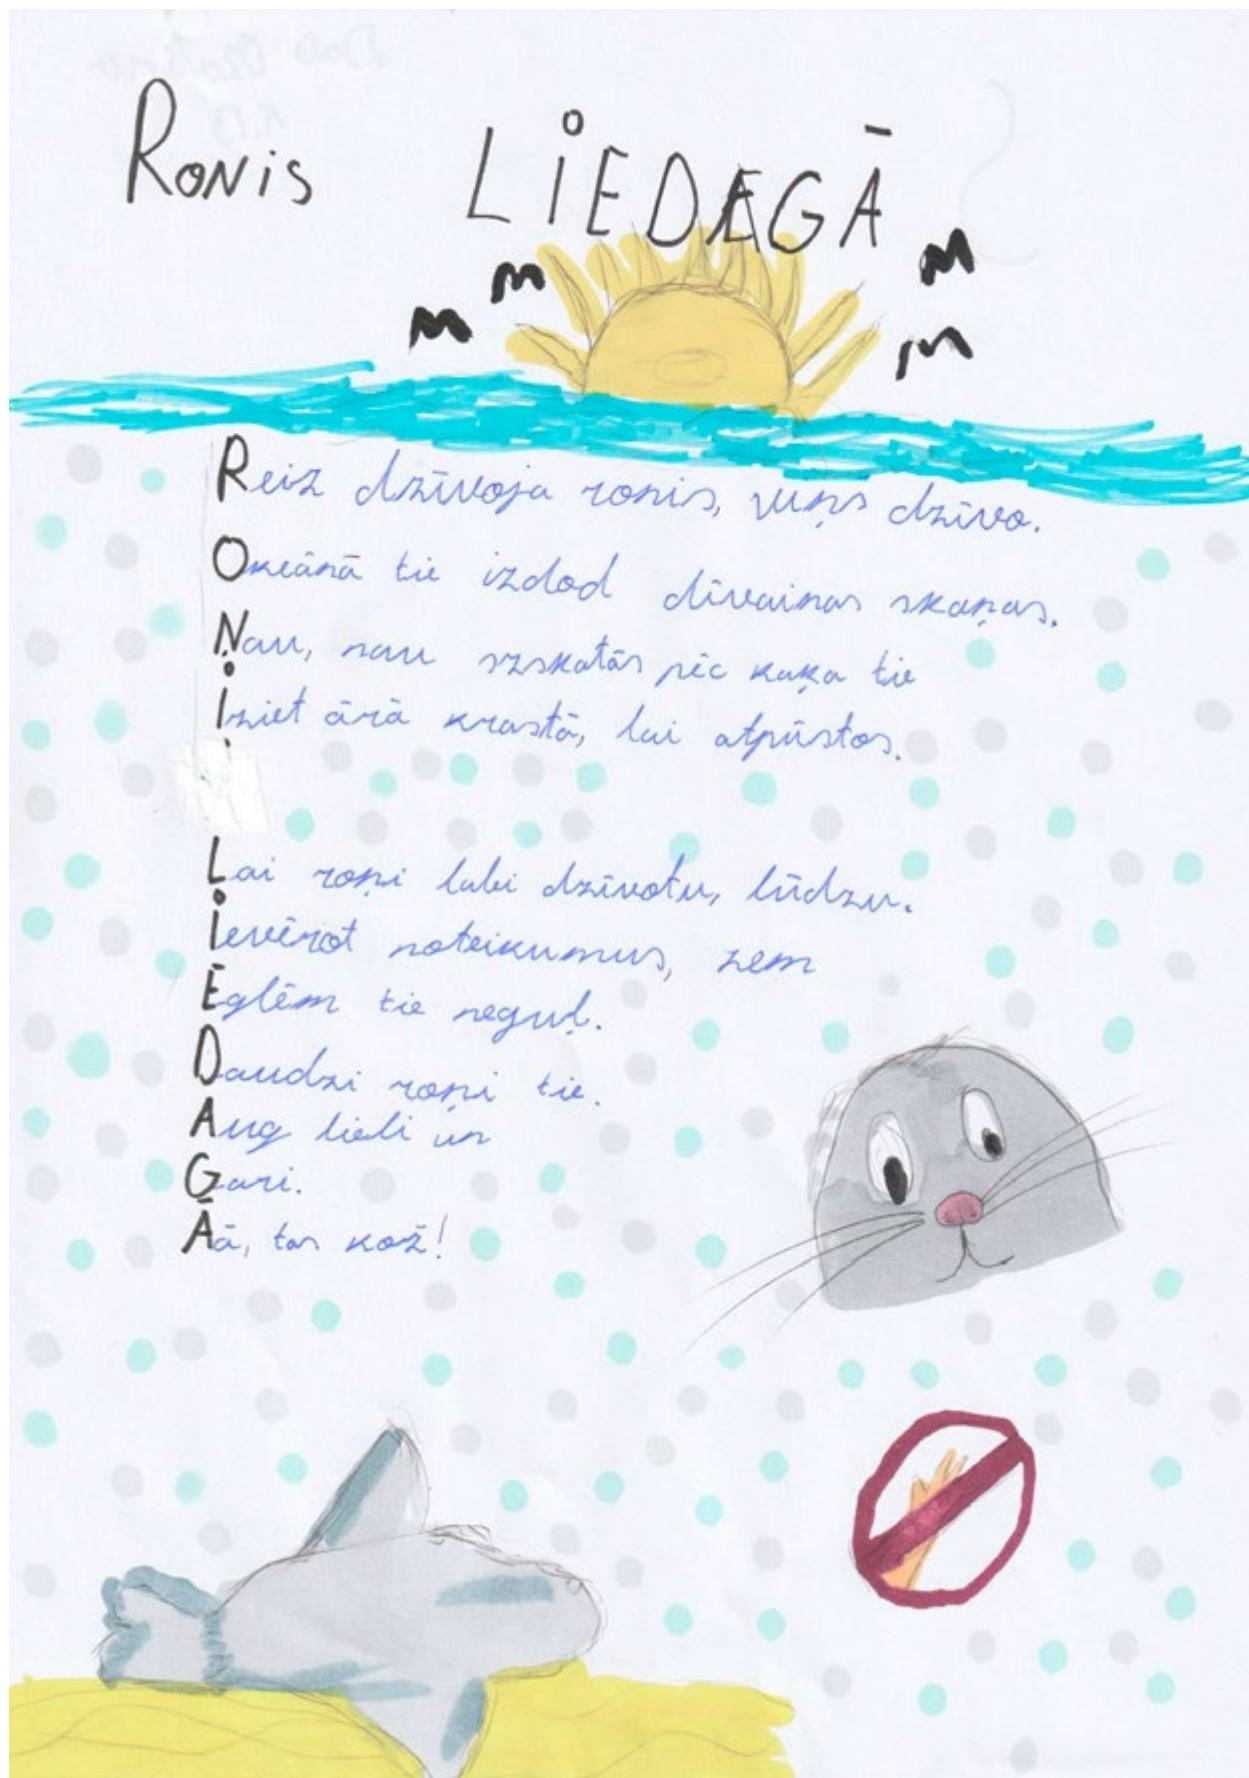 Ronis LIEDAGĀ
Reiz dzīvoja ronis, viņš dzīvo.
Okeānā tie izdod dīvainas skaņas.
Nau, nau izskatās pēc kaķa tie
Iziet ārā krastā, lai atpūstos.
Lai roņi labi dzīvotu, lūdzu.
Ievērot noteikumus, zem
Eglēm tie neguļ.
Daudzi roņi tie.
Aug lieli un
Gari.
Āā, tas kož!